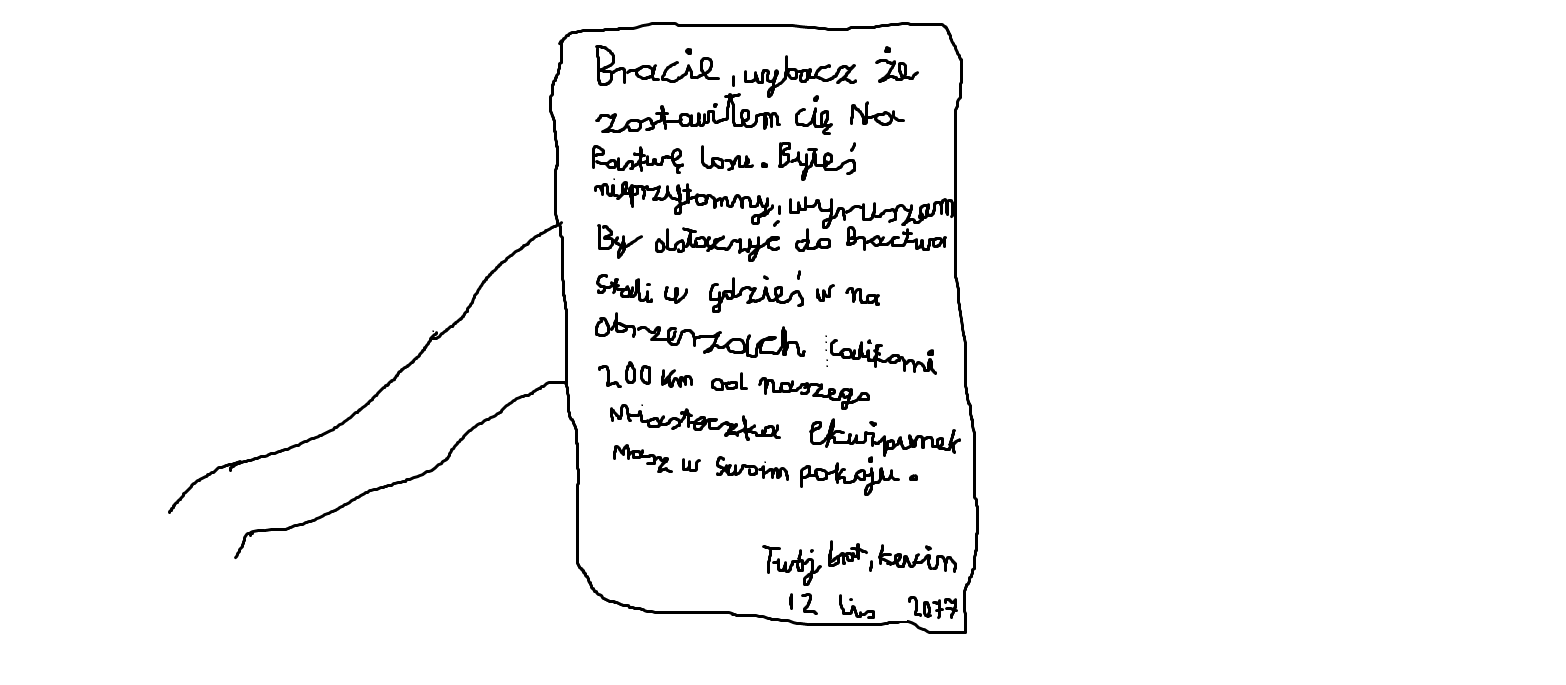 Bracie, wybacz że
zostawiłem cię Na
Pastwę losu. Byłeś
nieprzytomny, wyruszam
By dołaczyć do Bractwa
Stali w gdzieś w na
obrzerzach californi
200 km od naszego
Miasteczka Ekwipunek
Masz w Swoim pokoju.
Twój brat, kevin
12 lis 2077